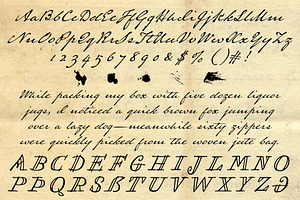 AaBbCcDdEeFfGgHhIiJjKkLlMm
NnOoPpQqRrSsTtUuVvWwXxYyZz
1234567890&$%()#!
While packing my box with five dozen liquor
jugs, I noticed a quick brown fox jumping
over a lazy dog—meanwhile sixty zippers
were quickly picked from the woven jute bag.
ABCDEFGHIJLMNO
PPQRSSTUVWXYZ